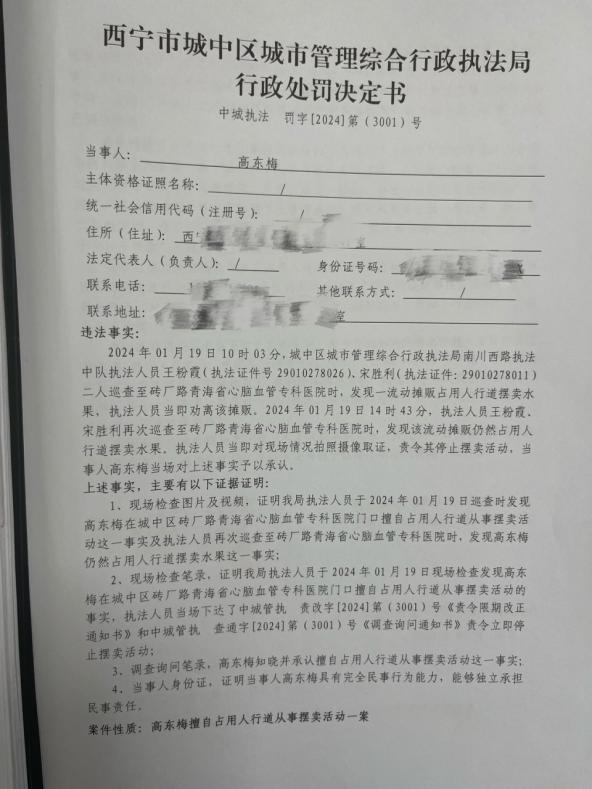 西宁市城中区城市管理综合行政执法局
行政处罚决定书
中城执法 罚字[2024]第（3001）号
当事人： 高东梅
主体资格证照名称： /
统一社会信用代码（注册号）： /
住所（住址）： 西 室
法定代表人（负责人）： / 身份证号码：
联系电话： 其他联系方式： /
联系地址： 室
违法事实：
2024年01月19日10时03分，城中区城市管理综合行政执法局南川西路执法
中队执法人员王粉霞（执法证件号29010278026）、宋胜利（执法证件：29010278011）
二人巡查至砖厂路青海省心脑血管专科医院时，发现一流动摊贩占用人行道摆卖水
果，执法人员当即劝离该摊贩。2024年01月19日14时43分，执法人员王粉霞、
宋胜利再次巡查至砖厂路青海省心脑血管专科医院时，发现该流动摊贩仍然占用人
行道摆卖水果。执法人员当即对现场情况拍照摄像取证，责令其停止摆卖活动，当
事人高东梅当场对上述事实予以承认。
上述事实，主要有以下证据证明：
1、现场检查图片及视频，证明我局执法人员于2024年01月19日巡查时发现
高东梅在城中区砖厂路青海省心脑血管专科医院门口擅自占用人行道从事摆卖活
动这一事实及执法人员再次巡查至砖厂路青海省心脑血管专科医院时，发现高东梅
仍然占用人行道摆卖水果这一事实；
2、现场检查笔录，证明我局执法人员于2024年01月19日现场检查发现高东
梅在城中区砖厂路青海省心脑血管专科医院门口擅自占用人行道从事摆卖活动的
事实，执法人员当场下达了中城管执 责改字[2024]第（3001）号《责令限期改正
通知书》和中城管执 查通字[2024]第（3001）号《调查询问通知书》责令立即停
止摆卖活动；
3、调查询问笔录，高东梅知晓并承认擅自占用人行道从事摆卖活动这一事实；
4、当事人身份证，证明当事人高东梅具有完全民事行为能力，能够独立承担
民事责任。
案件性质：高东梅擅自占用人行道从事摆卖活动一案